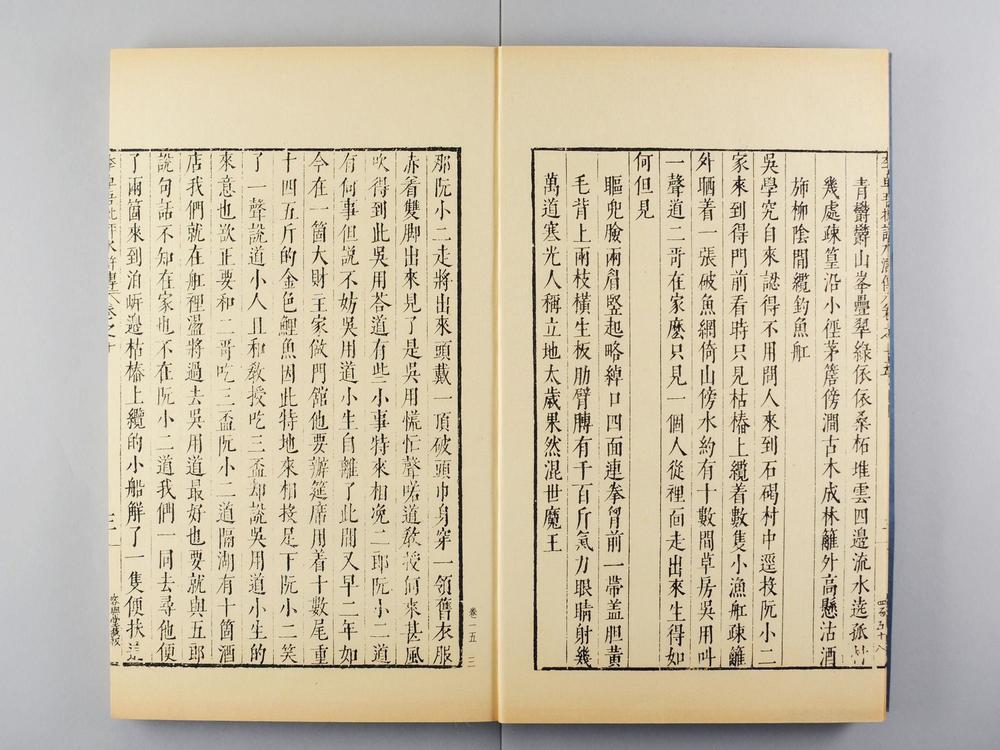 青欝欝山峯疊翠綠依依桑柘堆雲四邉流水遶孤村
幾處疎篁沿小徑茅簷傍澗古木成林籬外高懸沽酒
斾柳陰閒纜釣魚舡
吳學究自來認得不用問人來到石碣村中逕投阮小二
家來到得門前看時只見枯樁上纜着數隻小漁舡疎籬
外晒着一張破魚網倚山傍水約有十數間草房吳用叫
一聲道二哥在家麽只見一個人從裡面走出來生得如
何但見
瞘兜臉兩眉竪起略綽口四面連拳胷前一帶盖胆黄
毛背上兩枝橫生板肋臂膊有千百斤氣力眼睛射幾
萬道寒光人稱立地太歲果然混世魔王
那阮小二走將出來頭戴一頂破頭巾身穿一領舊衣服
赤着雙脚出來見了是吳用慌忙聲喏道敎授何來甚風
吹得到此吳用荅道有些小事特來相浼二郎阮小二道
有何事但說不妨吳用道小生自離了此間又早二年如
今在一箇大財主家做門館他要辦筵席用着十數尾重
十四五斤的金色鯉魚因此特地來相投足下阮小二笑
了一聲說道小人且和敎授吃三盃却說吳用道小生的
來意也欲正要和二哥吃三盃阮小二道隔湖有十箇酒
店我們就在舡裡盪將過去吳用道最好也要就與五郎
說句話不知在家也不在阮小二道我們一同去尋他便
了兩箇來到泊岸邉枯樁上纜的小船解了一隻便扶這
卷一五 三
容與堂藏板